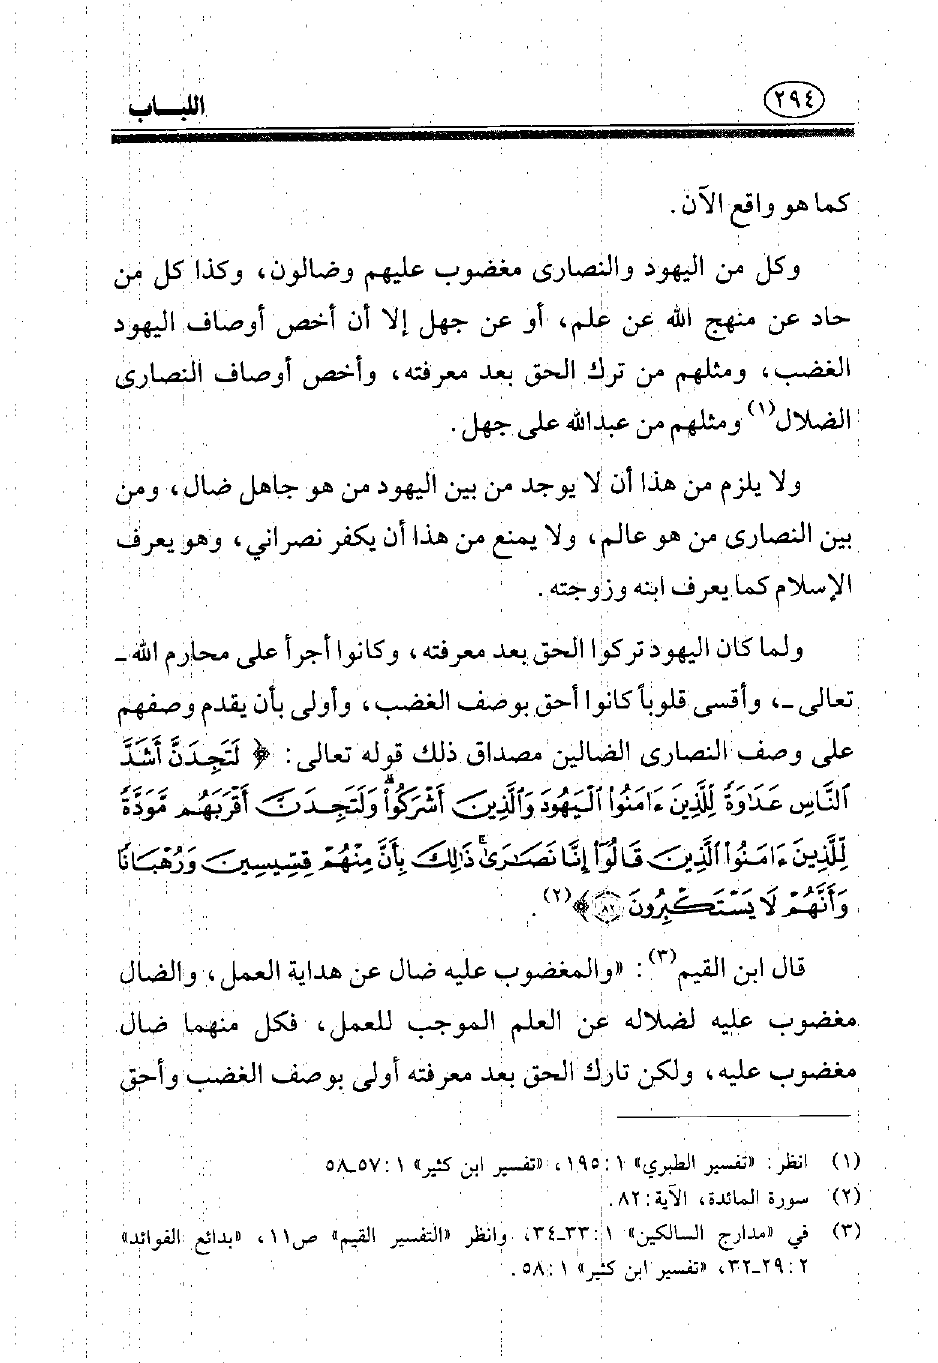 ٢٩٤
اللبـاب
كما هو واقع الآن.
وكل من اليهود والنصارى مغضوب عليهم وضالون، وكذا كل من
حاد عن منهج الله عن علم، أو عن جهل إلا أن أخص أوصاف اليهود
الغضب، ومثلهم من ترك الحق بعد معرفته، وأخص أوصاف النصارى
الضلال(١) ومثلهم من عبدالله على جهل.
ولا يلزم من هذا أن لا يوجد من بين اليهود من هو جاهل ضال، ومن
بين النصارى من هو عالم، ولا يمنع من هذا أن يكفر نصراني، وهو يعرف
الإسلام كما يعرف ابنه وزوجته.
ولما كان اليهود تركوا الحق بعد معرفته، وكانوا أجرأ على محارم الله ـ
تعالى ـ، وأقسى قلوباً كانوا أحق بوصف الغضب، وأولى بأن يقدم وصفهم
على وصف النصارى الضالين مصداق ذلك قوله تعالى: ﴿ لَتَجِدَنَّ أَشَدَّ
ٱلنَّاسِ عَدَاوَةً لِّلَّذِينَ ءَامَنُوا۟ ٱلْيَهُودَ وَٱلَّذِينَ أَشْرَكُوا۟ ۖ وَلَتَجِدَنَّ أَقْرَبَهُم مَّوَدَّةً
لِّلَّذِينَ ءَامَنُوا۟ ٱلَّذِينَ قَالُوٓا۟ إِنَّا نَصَـٰرَىٰ ۚ ذَٰلِكَ بِأَنَّ مِنْهُمْ قِسِّيسِينَ وَرُهْبَانًا
وَأَنَّهُمْ لَا يَسْتَكْبِرُونَ ٨٢ ﴾(٢).
قال ابن القيم(٣): «والمغضوب عليه ضال عن هداية العمل، والضال
مغضوب عليه لضلاله عن العلم الموجب للعمل، فكل منهما ضال
مغضوب عليه، ولكن تارك الحق بعد معرفته أولى بوصف الغضب وأحق
(١) انظر: «تفسير الطبري» ١: ١٩٥، «تفسير ابن كثير» ١: ٥٧ـ٥٨
(٢) سورة المائدة، الآية: ٨٢.
(٣) في «مدارج السالكين» ١: ٣٣ـ٣٤، وانظر «التفسير القيم» ص١١، «بدائع الفوائد»
٢: ٢٩ـ٣٢، «تفسير ابن كثير» ١: ٥٨.